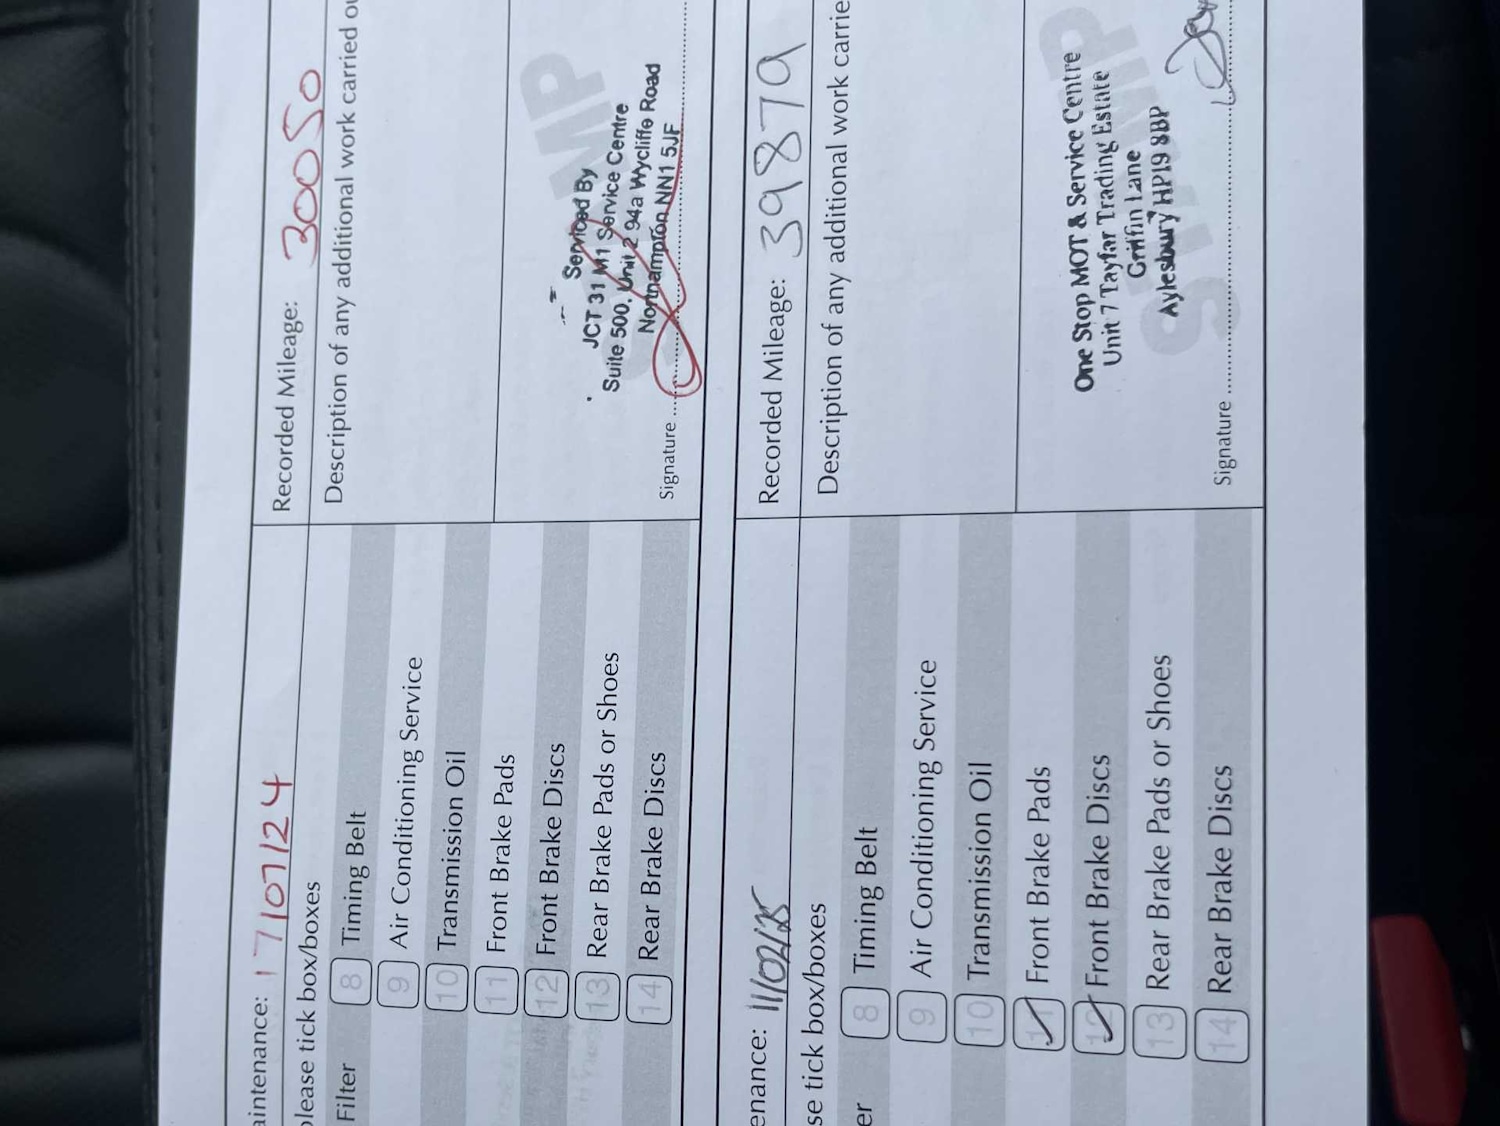 aintenance: 17/07/24
Recorded Mileage: 30050
please tick box/boxes
Description of any additional work carried ou
Filter
8 Timing Belt
9 Air Conditioning Service
10 Transmission Oil
11 Front Brake Pads
12 Front Brake Discs
13 Rear Brake Pads or Shoes
14 Rear Brake Discs
STAMP
Serviced By
JCT 31 M1 Service Centre
Suite 500, Unit 2 94a Wycliffe Road
Northampton NN1 5JF
Signature
enance: 11/02/25
Recorded Mileage: 39879
se tick box/boxes
Description of any additional work carrie
er
8 Timing Belt
9 Air Conditioning Service
10 Transmission Oil
11 Front Brake Pads
12 Front Brake Discs
13 Rear Brake Pads or Shoes
14 Rear Brake Discs
STAMP
One Stop MOT & Service Centre
Unit 7 Tayfar Trading Estate
Griffin Lane
Aylesbury HP19 8BP
Signature